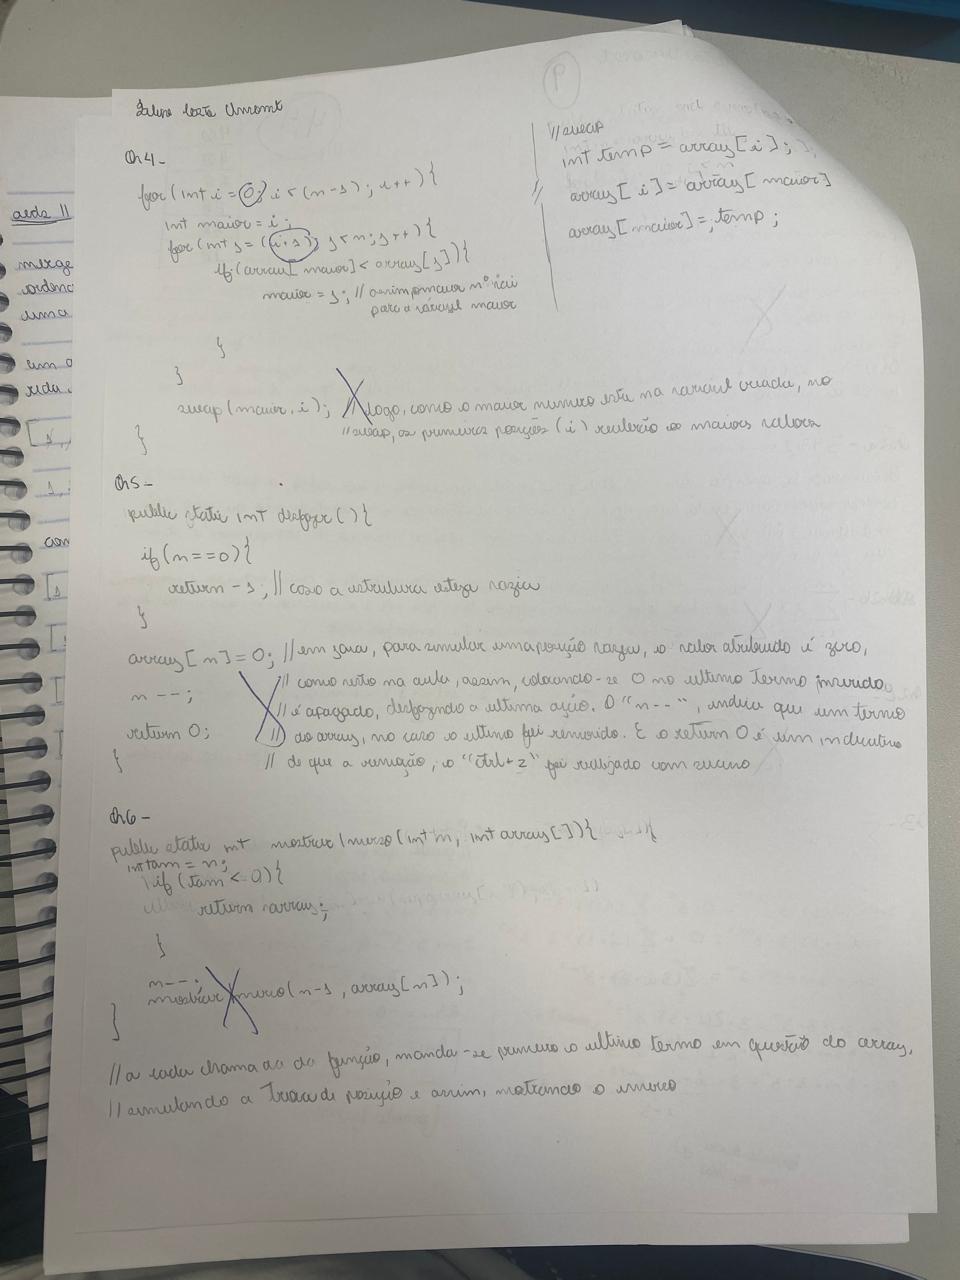 P
Q4-
for (int i = 0; i < (n-1); i++){
int maior = i;
for (int j = (i+1); j < n; j++){
if (array[maior] < array[j]){
maior = j; // assim o maior nº vai
para a váriavel maior
}
}
swap (maior, i); // logo, como o maior numero esta na variavel criada, no
// swap, as primeiras posições (i) receberão os maiores valores
}
// swap
int temp = array[i];
array[i] = array[maior]
array[maior] = temp;
Q5-
public static int desfazer(){
if (n==0){
return -1; // caso a estrutura esteja vazia
}
array[n] = 0; // em java, para simular uma posição vazia, o valor atribuido é zero,
n--; // como visto na aula, assim, colocando-se 0 no ultimo termo inserido,
// é apagado, desfazendo a ultima ação. O "n--", indica que um termo
return 0; // do array, no caso o ultimo foi removido. E o return 0 é um indicativo
} // de que a remoção, o "ctrl+z" foi realizado com sucesso
Q6-
public static int mostrar Inverso (int n, int array[]){
int tam = n;
if (tam < 0){
return array;
}
n--;
mostrar inverso (n-1, array[n]);
}
// a cada chamada da função, manda-se primeiro o ultimo termo em questão do array,
// simulando a troca de posição e assim, mostrando o inverso
aeds II
merge
ordena
uma
em o
com